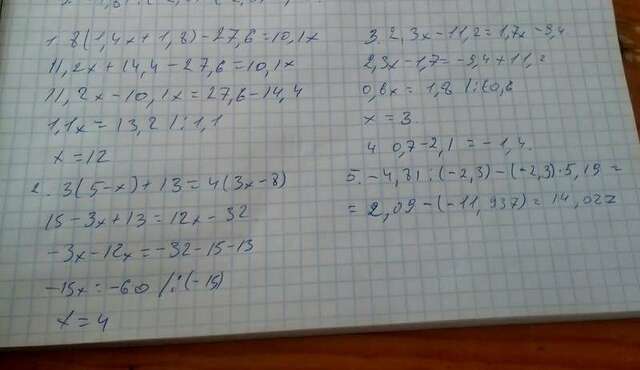 1. 8(1,4x+1,8)-27,6=10,1x
11,2x+14,4-27,6=10,1x
11,2x-10,1x=27,6-14,4
1,1x=13,2/:1,1
x=12
2. 3(5-x)+13=4(3x-8)
15-3x+13=12x-32
-3x-12x=-32-15-13
-15x=-60/:(-15)
x=4
3. 2,3x-11,2=1,7x-9,4
2,3x-1,7=-9,4+11,2
0,6x=1,8/:0,6
x=3
4 0,7-2,1=-1,4.
5. -4,81:(-2,3)-(-2,3)·5,19=
=2,09-(-11,937)=14,027